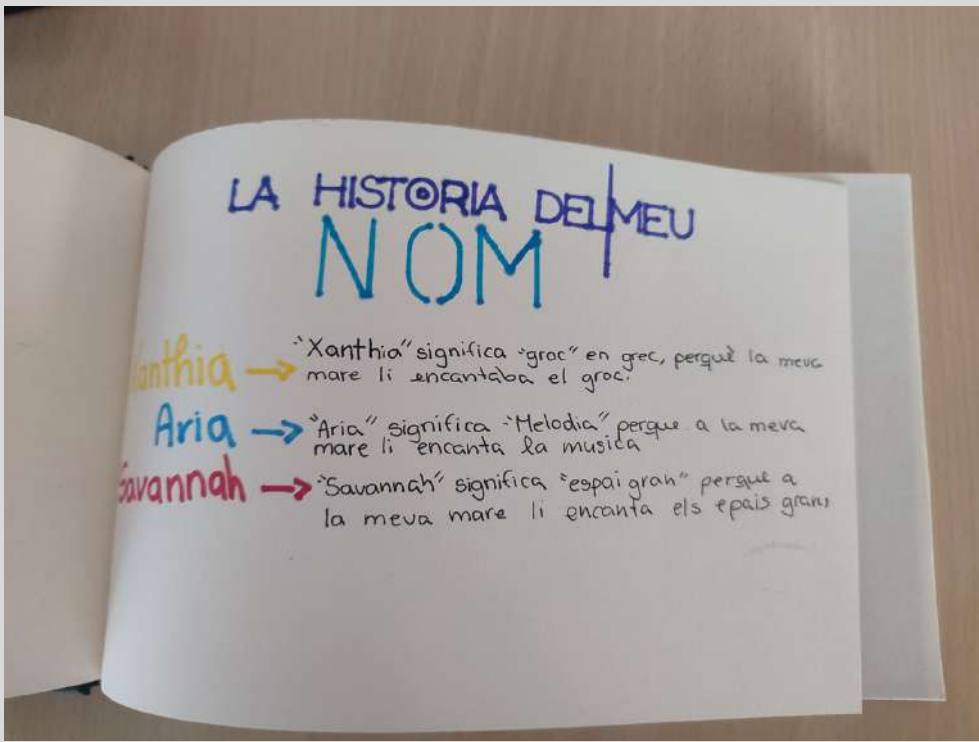 LA HISTORIA DEL MEU
NOM
Xanthia → "Xanthia" significa "groc" en grec, perquè la meva
mare li encantaba el groc.
Aria → "Aria" significa "Melodia" perque a la meva
mare li encanta la musica
Savannah → "Savannah" significa "espai gran" perque a
la meva mare li encanta els epais grans